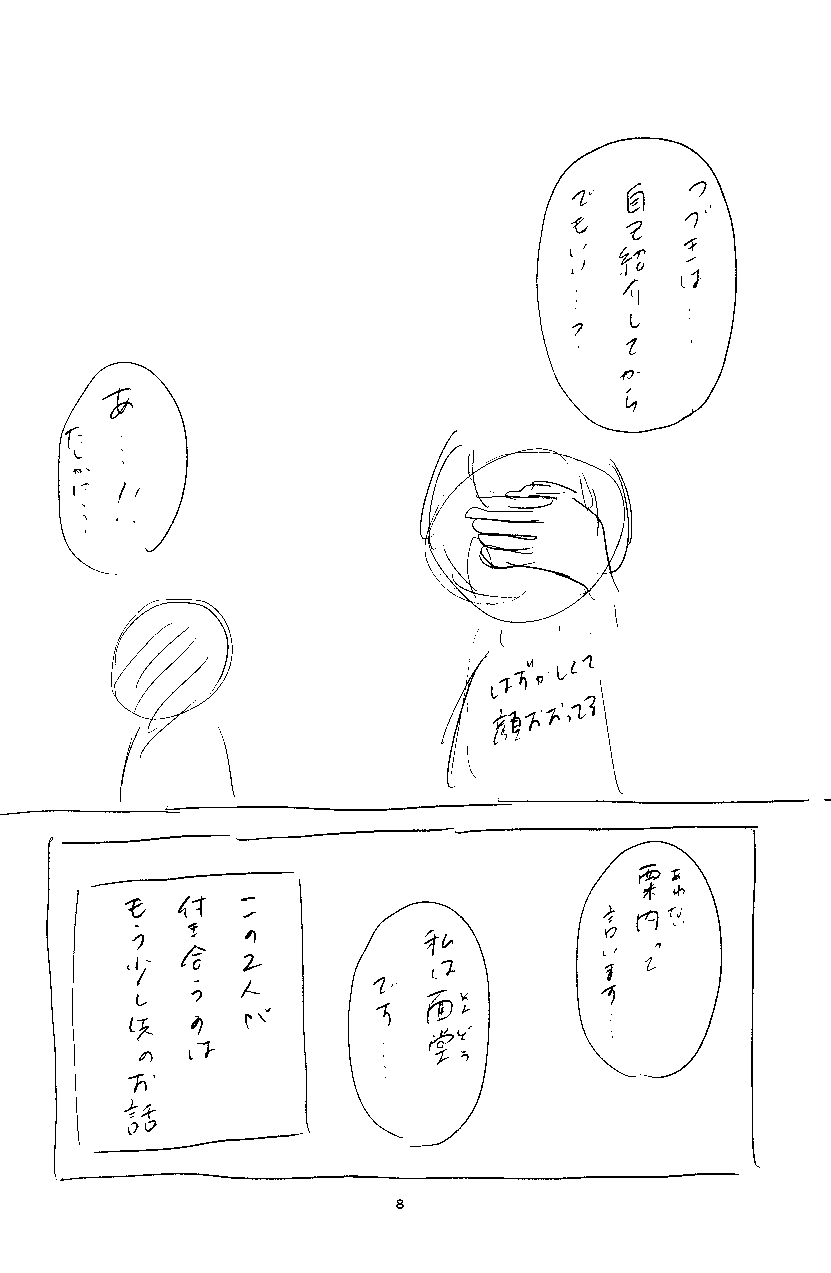 つづきは…
自己紹介してから
でもいい…?
あ…!!
たしかに…
はずかしくて
顔おおってる
あわない
粟内って
言います…
私は面堂
です…
この2人が
付き合うのは
もう少し先のお話
8